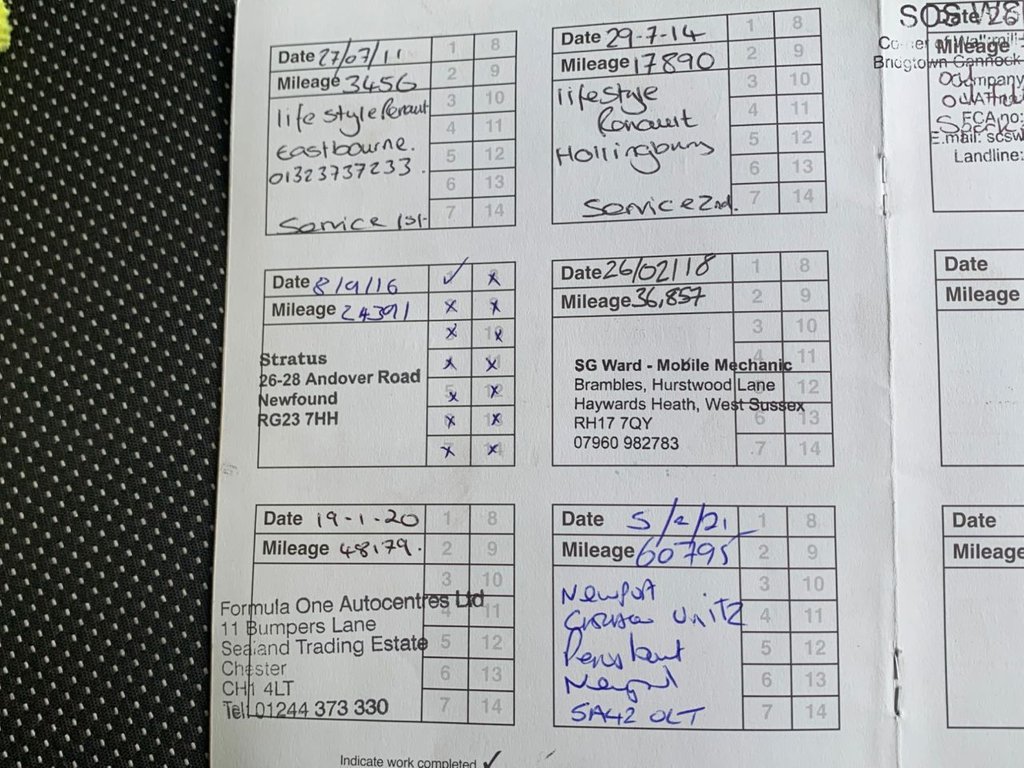 Date 27/07/11
Mileage 3456
life style Renault
Eastbourne.
01323737233.
Service 1st
1 8
2 9
3 10
4 11
5 12
6 13
7 14
Date 29-7-14
Mileage 17890
lifestyle
Renault
Hollingbury
Service 2nd.
1 8
2 9
3 10
4 11
5 12
6 13
7 14
Date 8/9/16
Mileage 24391
Stratus
26-28 Andover Road
Newfound
RG23 7HH
Date 26/02/18
Mileage 36,857
SG Ward - Mobile Mechanic
Brambles, Hurstwood Lane
Haywards Heath, West Sussex
RH17 7QY
07960 982783
1 8
2 9
3 10
4 11
5 12
6 13
7 14
Date 19-1-20
Mileage 48179.
Formula One Autocentres Ltd
11 Bumpers Lane
Sealand Trading Estate
Chester
CH1 4LT
Tel: 01244 373 330
1 8
2 9
3 10
4 11
5 12
6 13
7 14
Date 5/2/21
Mileage 60795
Newport
Unit 2
Newport
SA42 0LT
1 8
2 9
3 10
4 11
5 12
6 13
7 14
Indicate work completed ✓
SOS
Date
Mileage
Bridgtown Cannock
Company
FCA no:
E.mail: sosw
Landline:
Date
Mileage
Date
Mileage